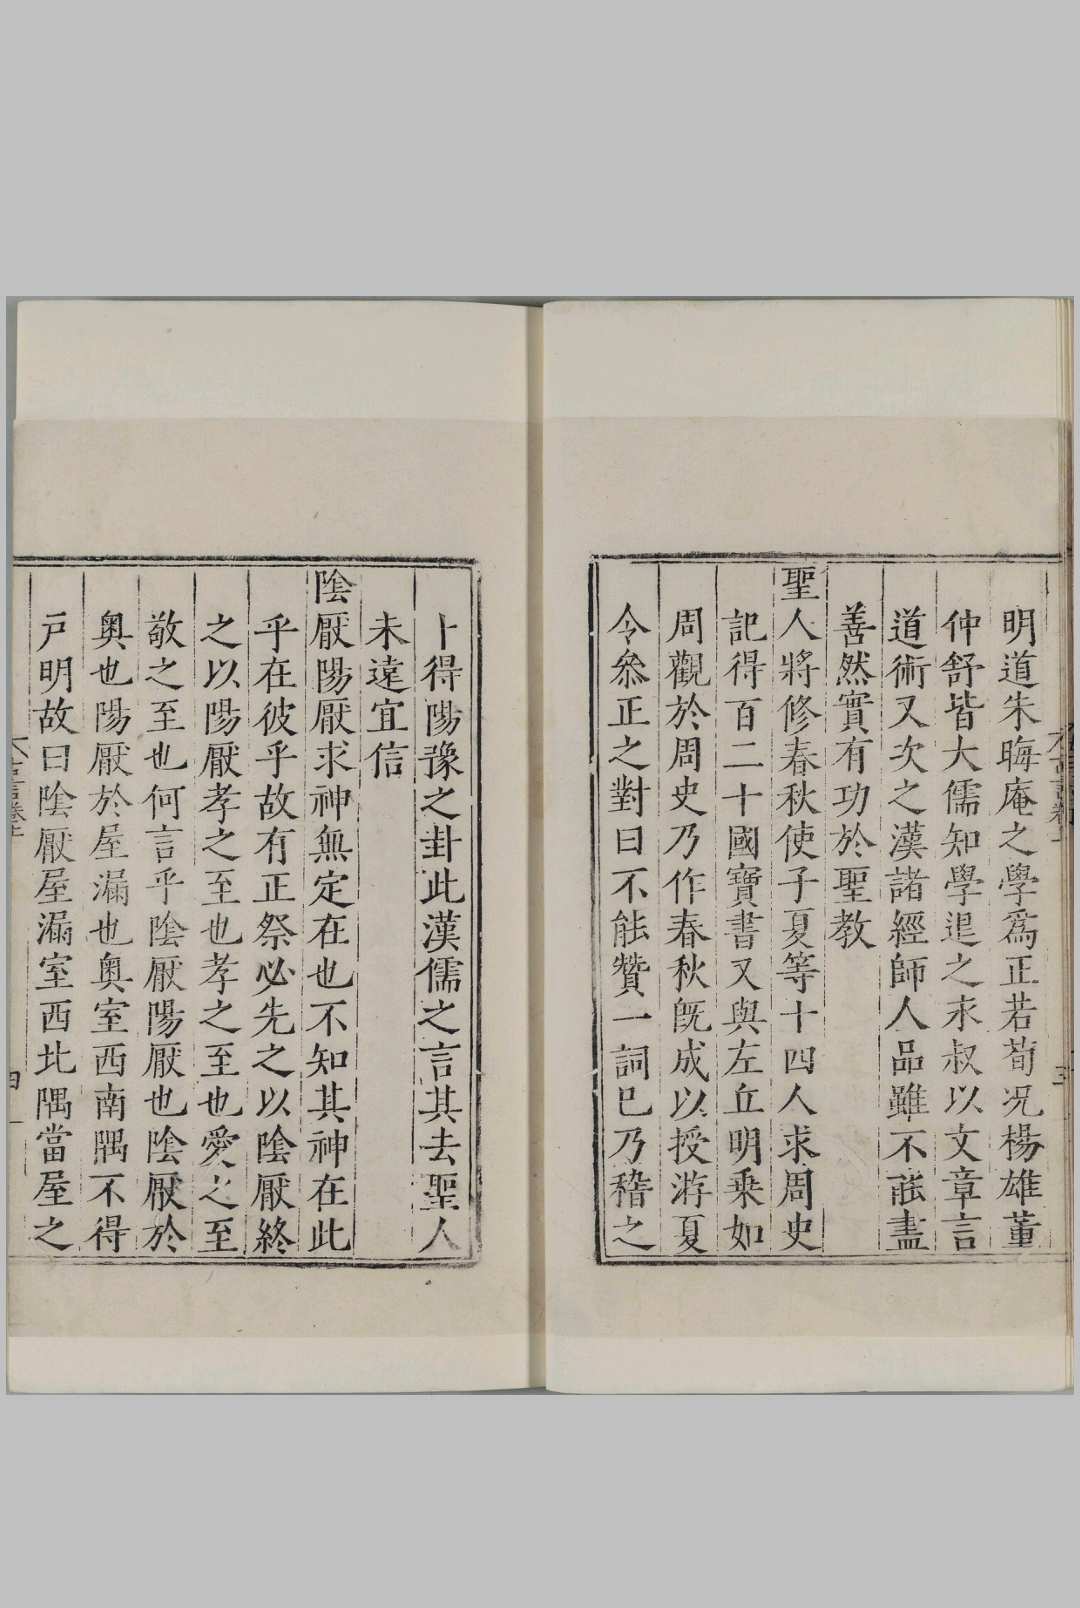 明道朱晦庵之學爲正若荀况楊雄董
仲舒皆大儒知學退之永叔以文章言
道術又次之漢諸經師人品雖不能盡
善然實有功於聖教
聖人將修春秋使子夏等十四人求周史
記得百二十國寶書又與左丘明乘如
周觀於周史乃作春秋旣成以授游夏
令叅正之對曰不能贊一詞巳乃稽之
卜得陽豫之卦此漢儒之言其去聖人
未遠宜信
陰厭陽厭求神無定在也不知其神在此
乎在彼乎故有正祭必先之以陰厭終
之以陽厭孝之至也孝之至也愛之至
敬之至也何言乎陰厭陽厭也陰厭於
奥也陽厭於屋漏也奥室西南隅不得
戸明故曰陰厭屋漏室西北隅當屋之
四